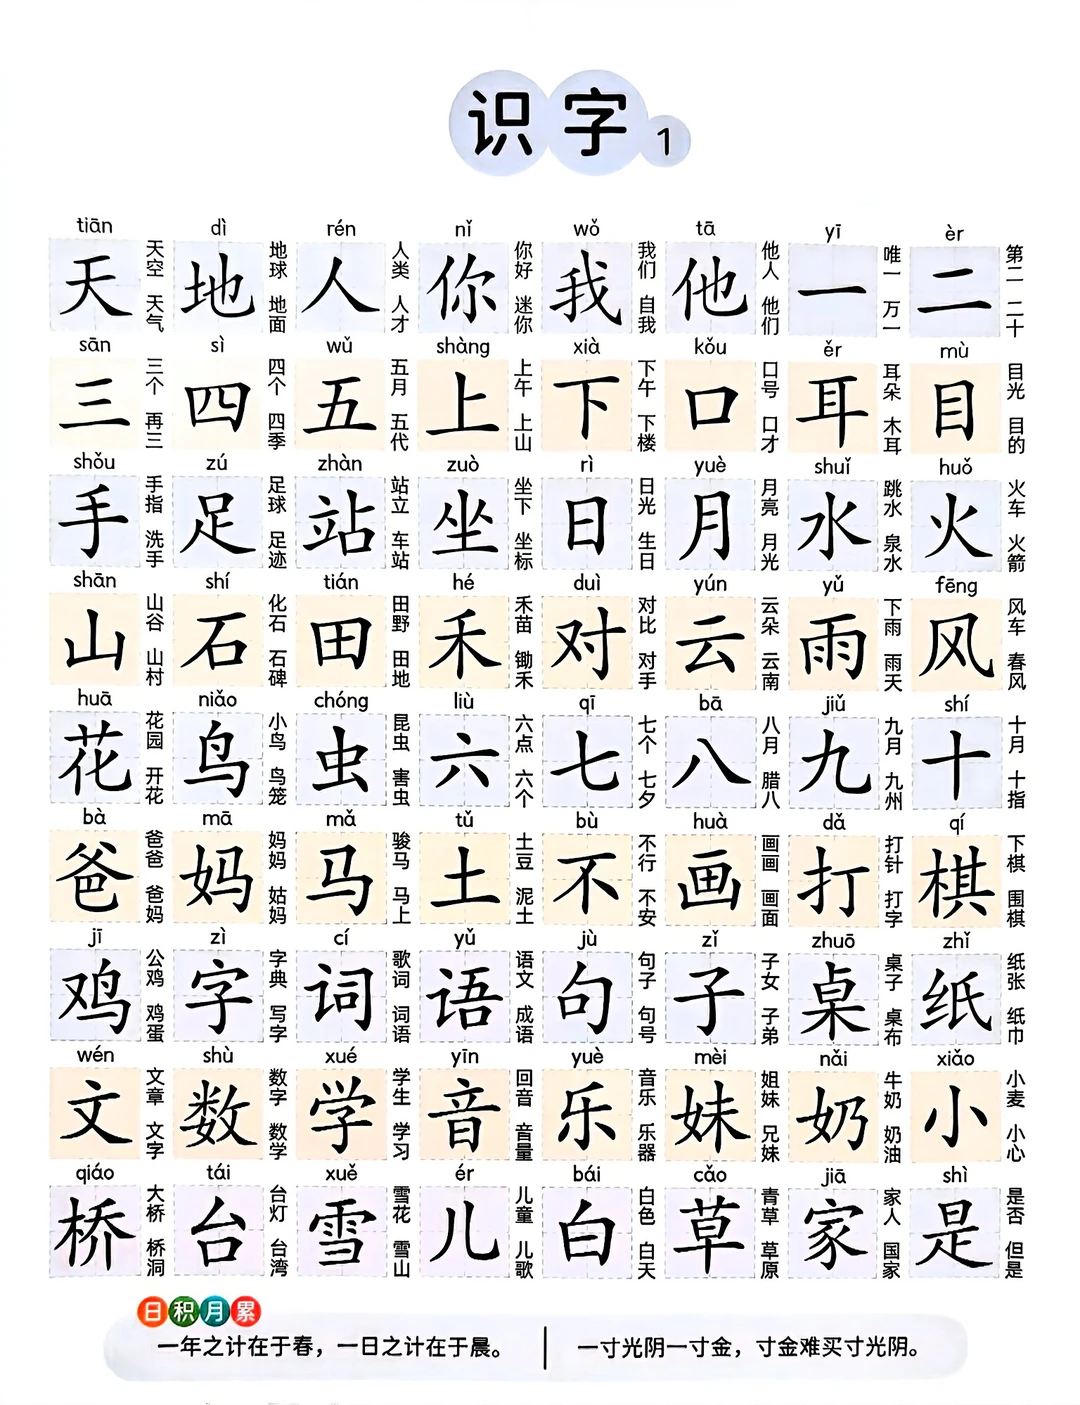 识字1
tiān dì rén nǐ wǒ tā yī èr
天 天空 天气 地 地球 地面 人 人类 人才 你 你好 迷你 我 我们 自我 他 他人 他们 一 唯一 万一 二 第二 二十
sān sì wǔ shàng xià kǒu ěr mù
三 三个 再三 四 四个 四季 五 五月 五代 上 上午 上山 下 下午 下楼 口 口号 口才 耳 耳朵 木耳 目 目光 目的
shǒu zú zhàn zuò rì yuè shuǐ huǒ
手 手指 洗手 足 足球 足迹 站 站立 车站 坐 坐下 坐标 日 日光 生日 月 月亮 月光 水 跳水 泉水 火 火车 火箭
shān shí tián hé duì yún yǔ fēng
山 山谷 山村 石 化石 石碑 田 田野 田地 禾 禾苗 锄禾 对 对比 对手 云 云朵 云南 雨 下雨 雨天 风 风车 春风
huā niǎo chóng liù qī bā jiǔ shí
花 花园 开花 鸟 小鸟 鸟笼 虫 昆虫 害虫 六 六点 六个 七 七个 七夕 八 八月 腊八 九 九月 九州 十 十月 十指
bà mā mǎ tǔ bù huà dǎ qí
爸 爸爸 爸妈 妈 妈妈 姑妈 马 骏马 马上 土 土豆 泥土 不 不行 不安 画 画画 画面 打 打针 打字 棋 下棋 围棋
jī zì cí yǔ jù zǐ zhuō zhǐ
鸡 公鸡 鸡蛋 字 字典 写字 词 歌词 词语 语 语文 成语 句 句子 句号 子 子女 子弟 桌 桌子 桌布 纸 纸张 纸巾
wén shù xué yīn yuè mèi nǎi xiǎo
文 文章 文字 数 数字 数学 学 学生 学习 音 回音 音量 乐 音乐 乐器 妹 姐妹 兄妹 奶 牛奶 奶油 小 小麦 小心
qiáo tái xuě ér bái cǎo jiā shì
桥 大桥 桥洞 台 台灯 台湾 雪 雪花 雪山 儿 儿童 儿歌 白 白色 白天 草 青草 草原 家 家人 国家 是 是否 但是
日积月累
一年之计在于春，一日之计在于晨。 一寸光阴一寸金，寸金难买寸光阴。